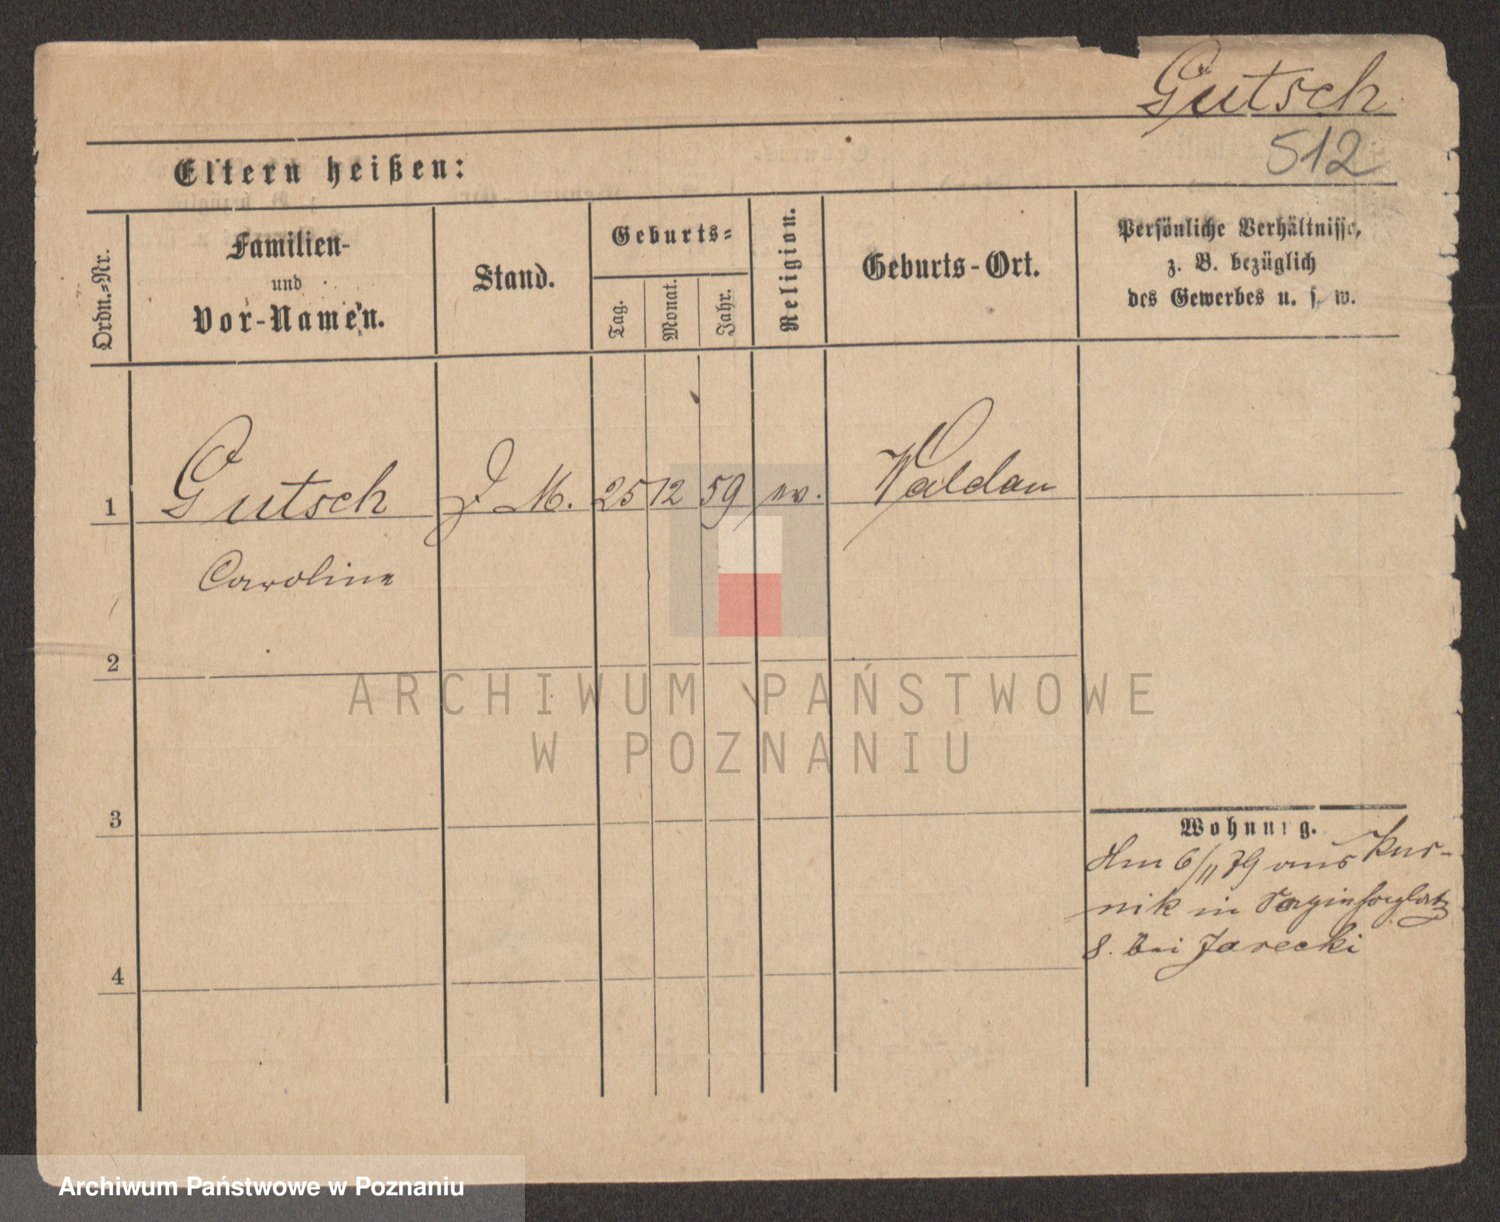 Gutsch
512
Eltern heißen:
Ordn.-Nr.
Familien-
und
Vor-Namen.
Stand.
Geburts-
Tag.
Monat.
Jahr.
Religion.
Geburts-Ort.
Persönliche Verhältnisse,
z. B. bezüglich
des Gewerbes u. s. w.
1
Gutsch
D. M.
25
12
59
ev.
Waldau
Caroline
2
ARCHIWUM PAŃSTWOWE
W POZNANIU
3
Wohnung.
6/11 79 aus Kur-
nik in
8. bei Jarecki
4
Archiwum Państwowe w Poznaniu